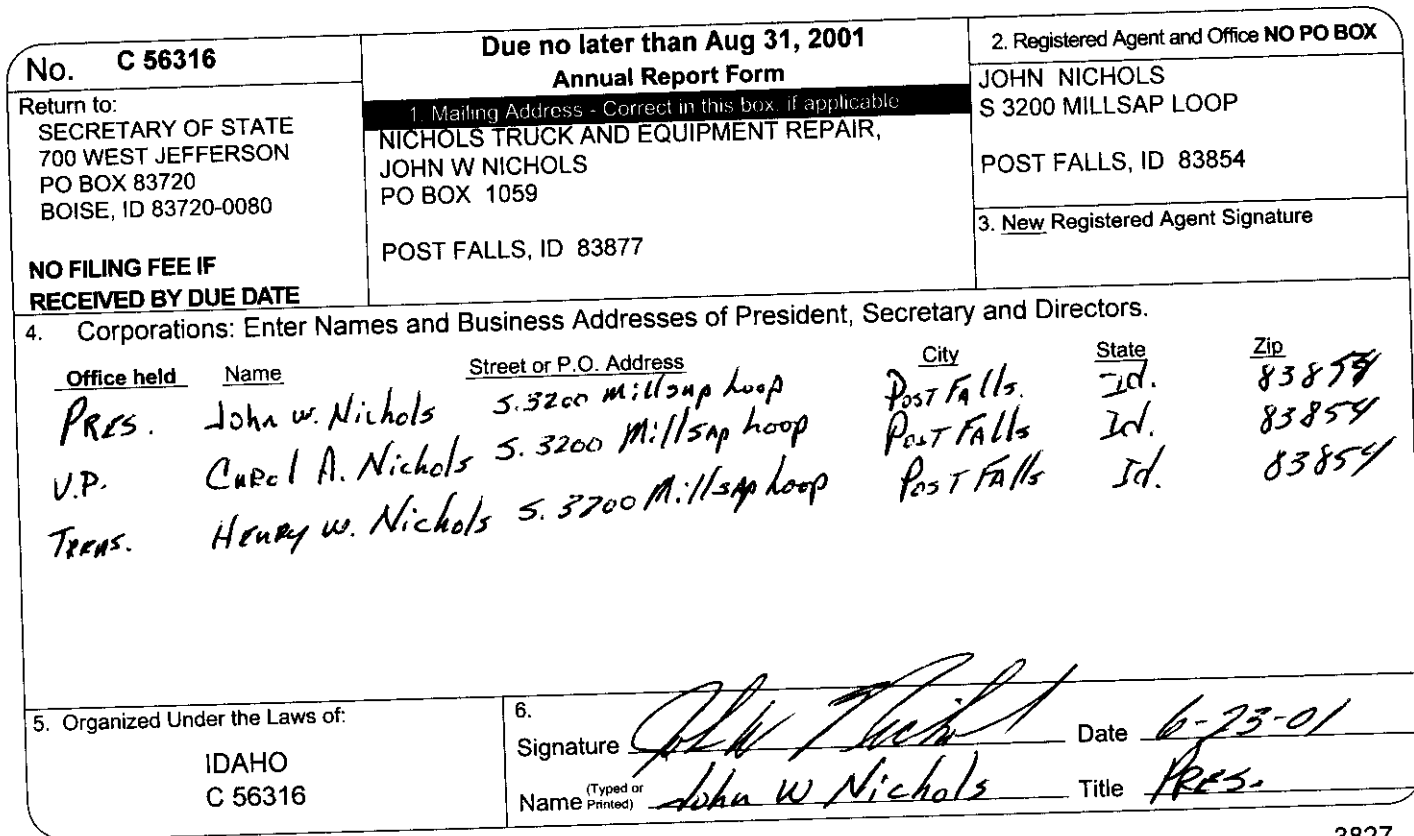 No. C 56316
Return to:
SECRETARY OF STATE
700 WEST JEFFERSON
PO BOX 83720
BOISE, ID 83720-0080
NO FILING FEE IF
RECEIVED BY DUE DATE
Due no later than Aug 31, 2001
Annual Report Form
1. Mailing Address - Correct in this box, if applicable
NICHOLS TRUCK AND EQUIPMENT REPAIR,
JOHN W NICHOLS
PO BOX 1059
POST FALLS, ID 83877
2. Registered Agent and Office NO PO BOX
JOHN NICHOLS
S 3200 MILLSAP LOOP
POST FALLS, ID 83854
3. New Registered Agent Signature
4. Corporations: Enter Names and Business Addresses of President, Secretary and Directors.
Office held Name Street or P.O. Address City State Zip
PRES. John W. Nichols S. 3200 Millsap Loop Post Falls. Id. 83854
V.P. Carol A. Nichols S. 3200 Millsap Loop Post Falls Id. 83854
Treas. Henry W. Nichols S. 3200 Millsap Loop Post Falls Id. 83854
5. Organized Under the Laws of:
IDAHO
C 56316
6.
Signature John W Nichols Date 6-23-01
Name (Typed or Printed) John W Nichols Title PRES.
3827